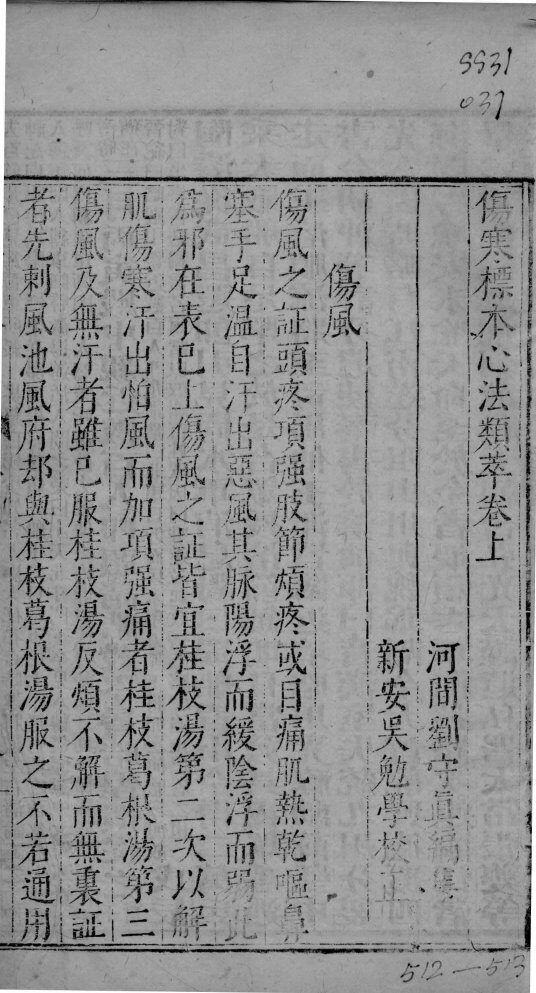 傷寒標本心法類萃卷上
河間劉守真編集
新安吳勉學校正
傷風
傷風之証頭疼項强肢節煩疼或目痛肌熱乾嘔鼻
塞手足温自汗出惡風其脉陽浮而緩陰浮而弱此
爲邪在表已上傷風之証皆宜桂枝湯第二次以解
肌傷寒汗出怕風而加項强痛者桂枝葛根湯第三
傷風及無汗者雖已服桂枝湯反煩不解而無裏証
者先刺風池風府却與桂枝葛根湯服之不若通用
9931
037
512—513